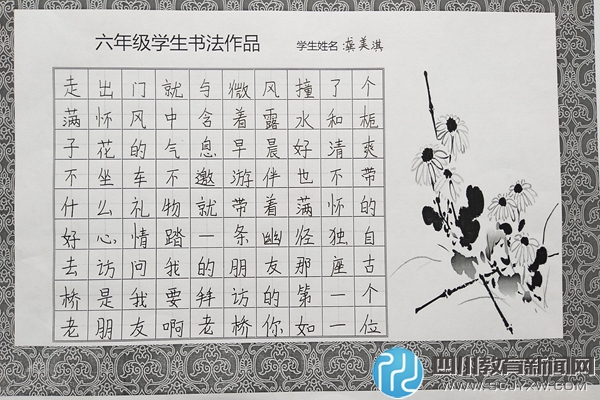 六年级学生书法作品
学生姓名:龚美淇
走出门就与微风撞了个
满怀风中含着露水和栀
子花的气息早晨好清爽
不坐车不邀游伴也不带
什么礼物就带着满怀的
好心情踏一条幽径独自
去访问我的朋友那座古
桥是我要拜访的第一个
老朋友啊老桥你如一位
四川教育新闻网
WWW.SCJYXW.COM